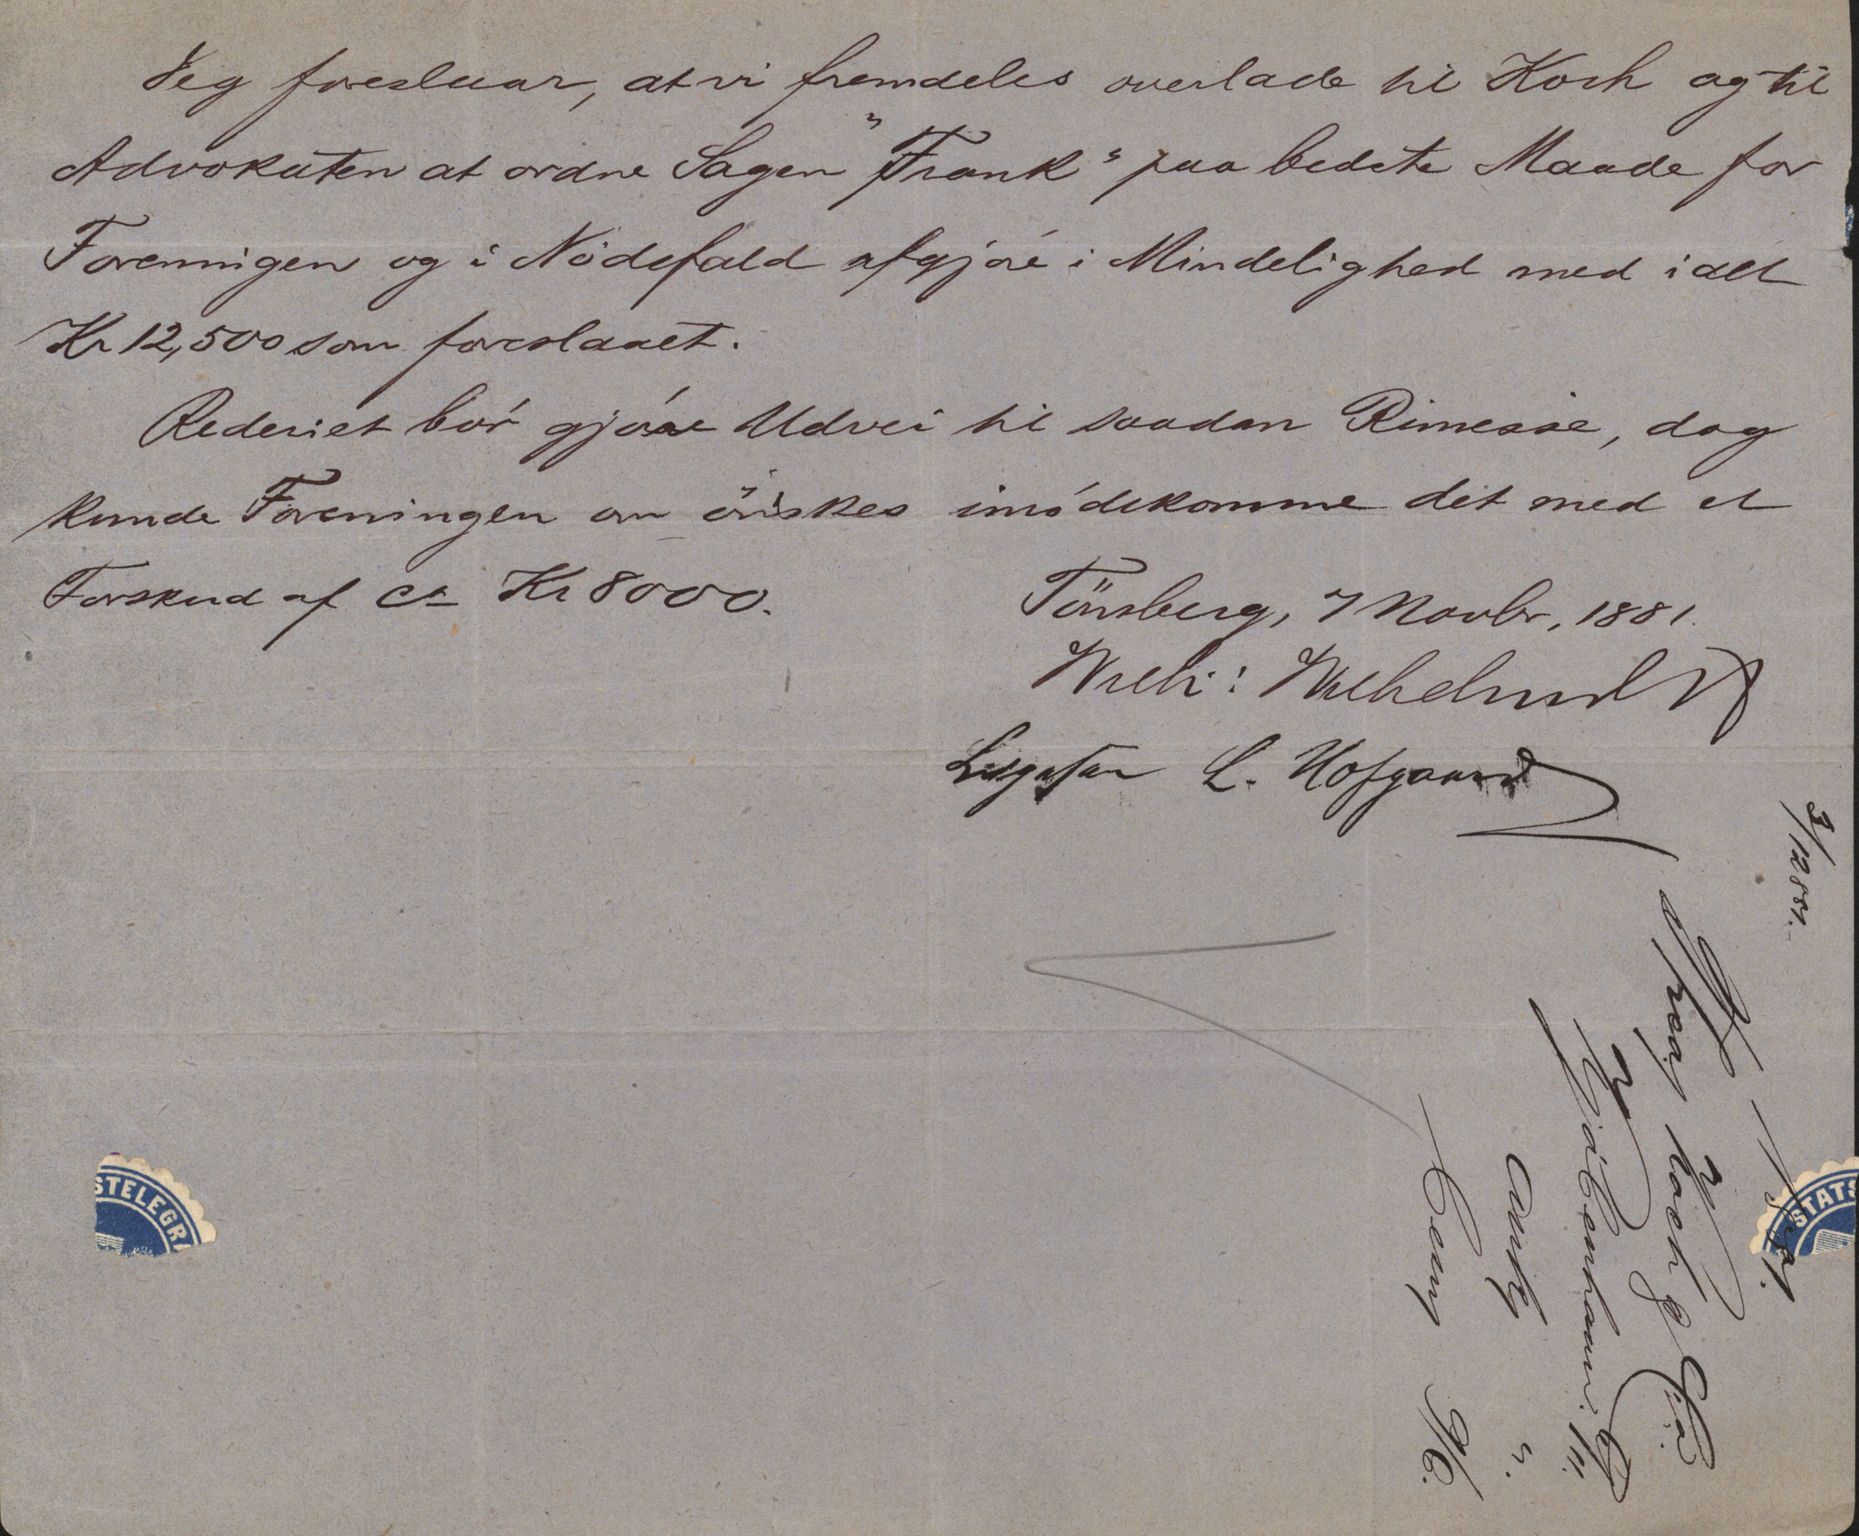 Jeg foreslaar, at vi fremdeles overlade til Koch og til
Advokaten at ordne Sagen "Frank" paa bedste Maade for
Foreningen og i Nödsfald afgjöre i Mindelighed med ialt
Kr 12,500 som foreslaaet.
Rederiet bör gjöre Udvei til saadan Rimesse, dog
kunde Foreningen om önskes imödekomme det med et
Forskud af ca Kr 8000.
Tönsberg, 7 Novbr, 1881.
Wilh: Wilhelmsen
Ligesaa L. Hofgaard
3/12 881.
Koch & Co.
Kjöbenhavn.
STELEGRA
STATS